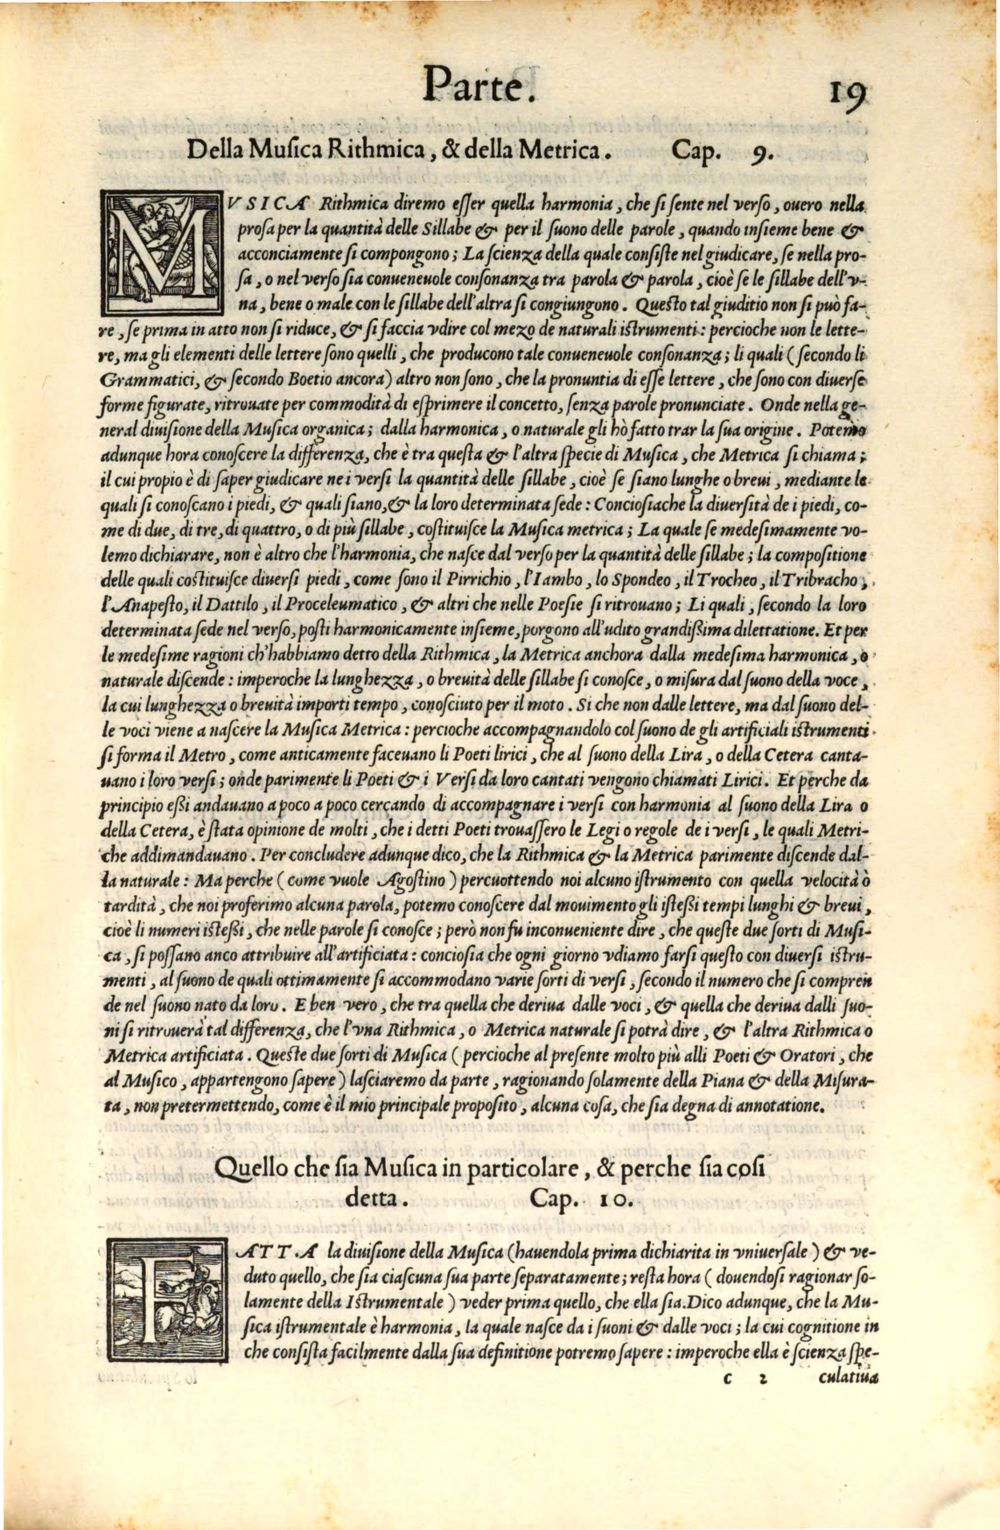 Parte. 19
Della Muſica Rithmica, & della Metrica. Cap. 9.
MVSICA Rithmica diremo eſſer quella harmonia, che ſi ſente nel verſo, ouero nella
proſa per la quantità delle Sillabe & per il ſuono delle parole, quando inſieme bene &
acconciamente ſi compongono; La ſcienza della quale conſiſte nel giudicare, ſe nella pro-
ſa, o nel verſo ſia conueneuole conſonanza tra parola & parola, cioè ſe le ſillabe dell'v-
na, bene o male con le ſillabe dell'altra ſi congiungono. Queſto tal giuditio non ſi può fa-
re, ſe prima in atto non ſi riduce, & ſi faccia vdire col mezo de naturali iſtrumenti: percioche non le lette-
re, ma gli elementi delle lettere ſono quelli, che producono tale conueneuole conſonanza; li quali (ſecondo li
Grammatici, & ſecondo Boetio ancora) altro non ſono, che la pronuntia di eſſe lettere, che ſono con diuerſe
forme figurate, ritrouate per commodità di eſprimere il concetto, ſenza parole pronunciate. Onde nella ge-
neral diuiſione della Muſica organica; dalla harmonica, o naturale gli hò fatto trar la ſua origine. Potemo
adunque hora conoſcere la differenza, che è tra queſta & l'altra ſpecie di Muſica, che Metrica ſi chiama;
il cui propio è di ſaper giudicare ne i verſi la quantità delle ſillabe, cioè ſe ſiano lunghe o breui, mediante le
quali ſi conoſcano i piedi, & quali ſiano, & la loro determinata ſede: Concioſiache la diuerſità de i piedi, co-
me di due, di tre, di quattro, o di più ſillabe, coſtituiſce la Muſica metrica; La quale ſe medeſimamente vo-
lemo dichiarare, non è altro che l'harmonia, che naſce dal verſo per la quantità delle ſillabe; la compoſitione
delle quali coſtituiſce diuerſi piedi, come ſono il Pirrichio, l'Iambo, lo Spondeo, il Trocheo, il Tribracho,
l'Anapeſto, il Dattilo, il Proceleumatico, & altri che nelle Poeſie ſi ritrouano; Li quali, ſecondo la loro
determinata ſede nel verſo, poſti harmonicamente inſieme, porgono all'udito grandiſsima dilettatione. Et per
le medeſime ragioni ch'habbiamo detto della Rithmica, la Metrica anchora dalla medeſima harmonica, o
naturale diſcende: imperoche la lunghezza, o breuità delle ſillabe ſi conoſce, o miſura dal ſuono della voce,
la cui lunghezza o breuità importi tempo, conoſciuto per il moto. Si che non dalle lettere, ma dal ſuono del-
le voci viene a naſcere la Muſica Metrica: percioche accompagnandolo col ſuono de gli artificiali iſtrumenti
ſi forma il Metro, come anticamente faceuano li Poeti lirici, che al ſuono della Lira, o della Cetera canta-
uano i loro verſi; onde parimente li Poeti & i Verſi da loro cantati vengono chiamati Lirici. Et perche da
principio eſsi andauano a poco a poco cercando di accompagnare i verſi con harmonia al ſuono della Lira o
della Cetera, è ſtata opinione de molti, che i detti Poeti trouaſſero le Legi o regole de i verſi, le quali Metri-
che addimandauano. Per concludere adunque dico, che la Rithmica & la Metrica parimente diſcende dal-
la naturale: Ma perche (come vuole Agoſtino) percuottendo noi alcuno iſtrumento con quella velocità ò
tardità, che noi proferimo alcuna parola, potemo conoſcere dal mouimento gli iſteſsi tempi lunghi & breui,
cioè li numeri iſteſsi, che nelle parole ſi conoſce; però non fu inconueniente dire, che queſte due ſorti di Muſi-
ca, ſi poſſano anco attribuire all'artificiata: concioſia che ogni giorno vdiamo farſi queſto con diuerſi iſtru-
menti, al ſuono de quali ottimamente ſi accommodano varie ſorti di verſi, ſecondo il numero che ſi compren
de nel ſuono nato da loro. E ben vero, che tra quella che deriua dalle voci, & quella che deriua dalli ſuo-
ni ſi ritrouerà tal differenza, che l'vna Rithmica, o Metrica naturale ſi potrà dire, & l'altra Rithmica o
Metrica artificiata. Queſte due ſorti di Muſica (percioche al preſente molto più alli Poeti & Oratori, che
al Muſico, appartengono ſapere) laſciaremo da parte, ragionando ſolamente della Piana & della Miſura-
ta, non pretermettendo, come è il mio principale propoſito, alcuna coſa, che ſia degna di annotatione.
Quello che ſia Muſica in particolare, & perche ſia coſi
detta. Cap. 10.
FATTA la diuiſione della Muſica (hauendola prima dichiarita in vniuerſale) & ve-
duto quello, che ſia ciaſcuna ſua parte ſeparatamente; reſta hora (douendoſi ragionar ſo-
lamente della Iſtrumentale) veder prima quello, che ella ſia. Dico adunque, che la Mu-
ſica iſtrumentale è harmonia, la quale naſce da i ſuoni & dalle voci; la cui cognitione in
che conſiſta facilmente dalla ſua definitione potremo ſapere: imperoche ella è ſcienza ſpe-
c 2 culatiua